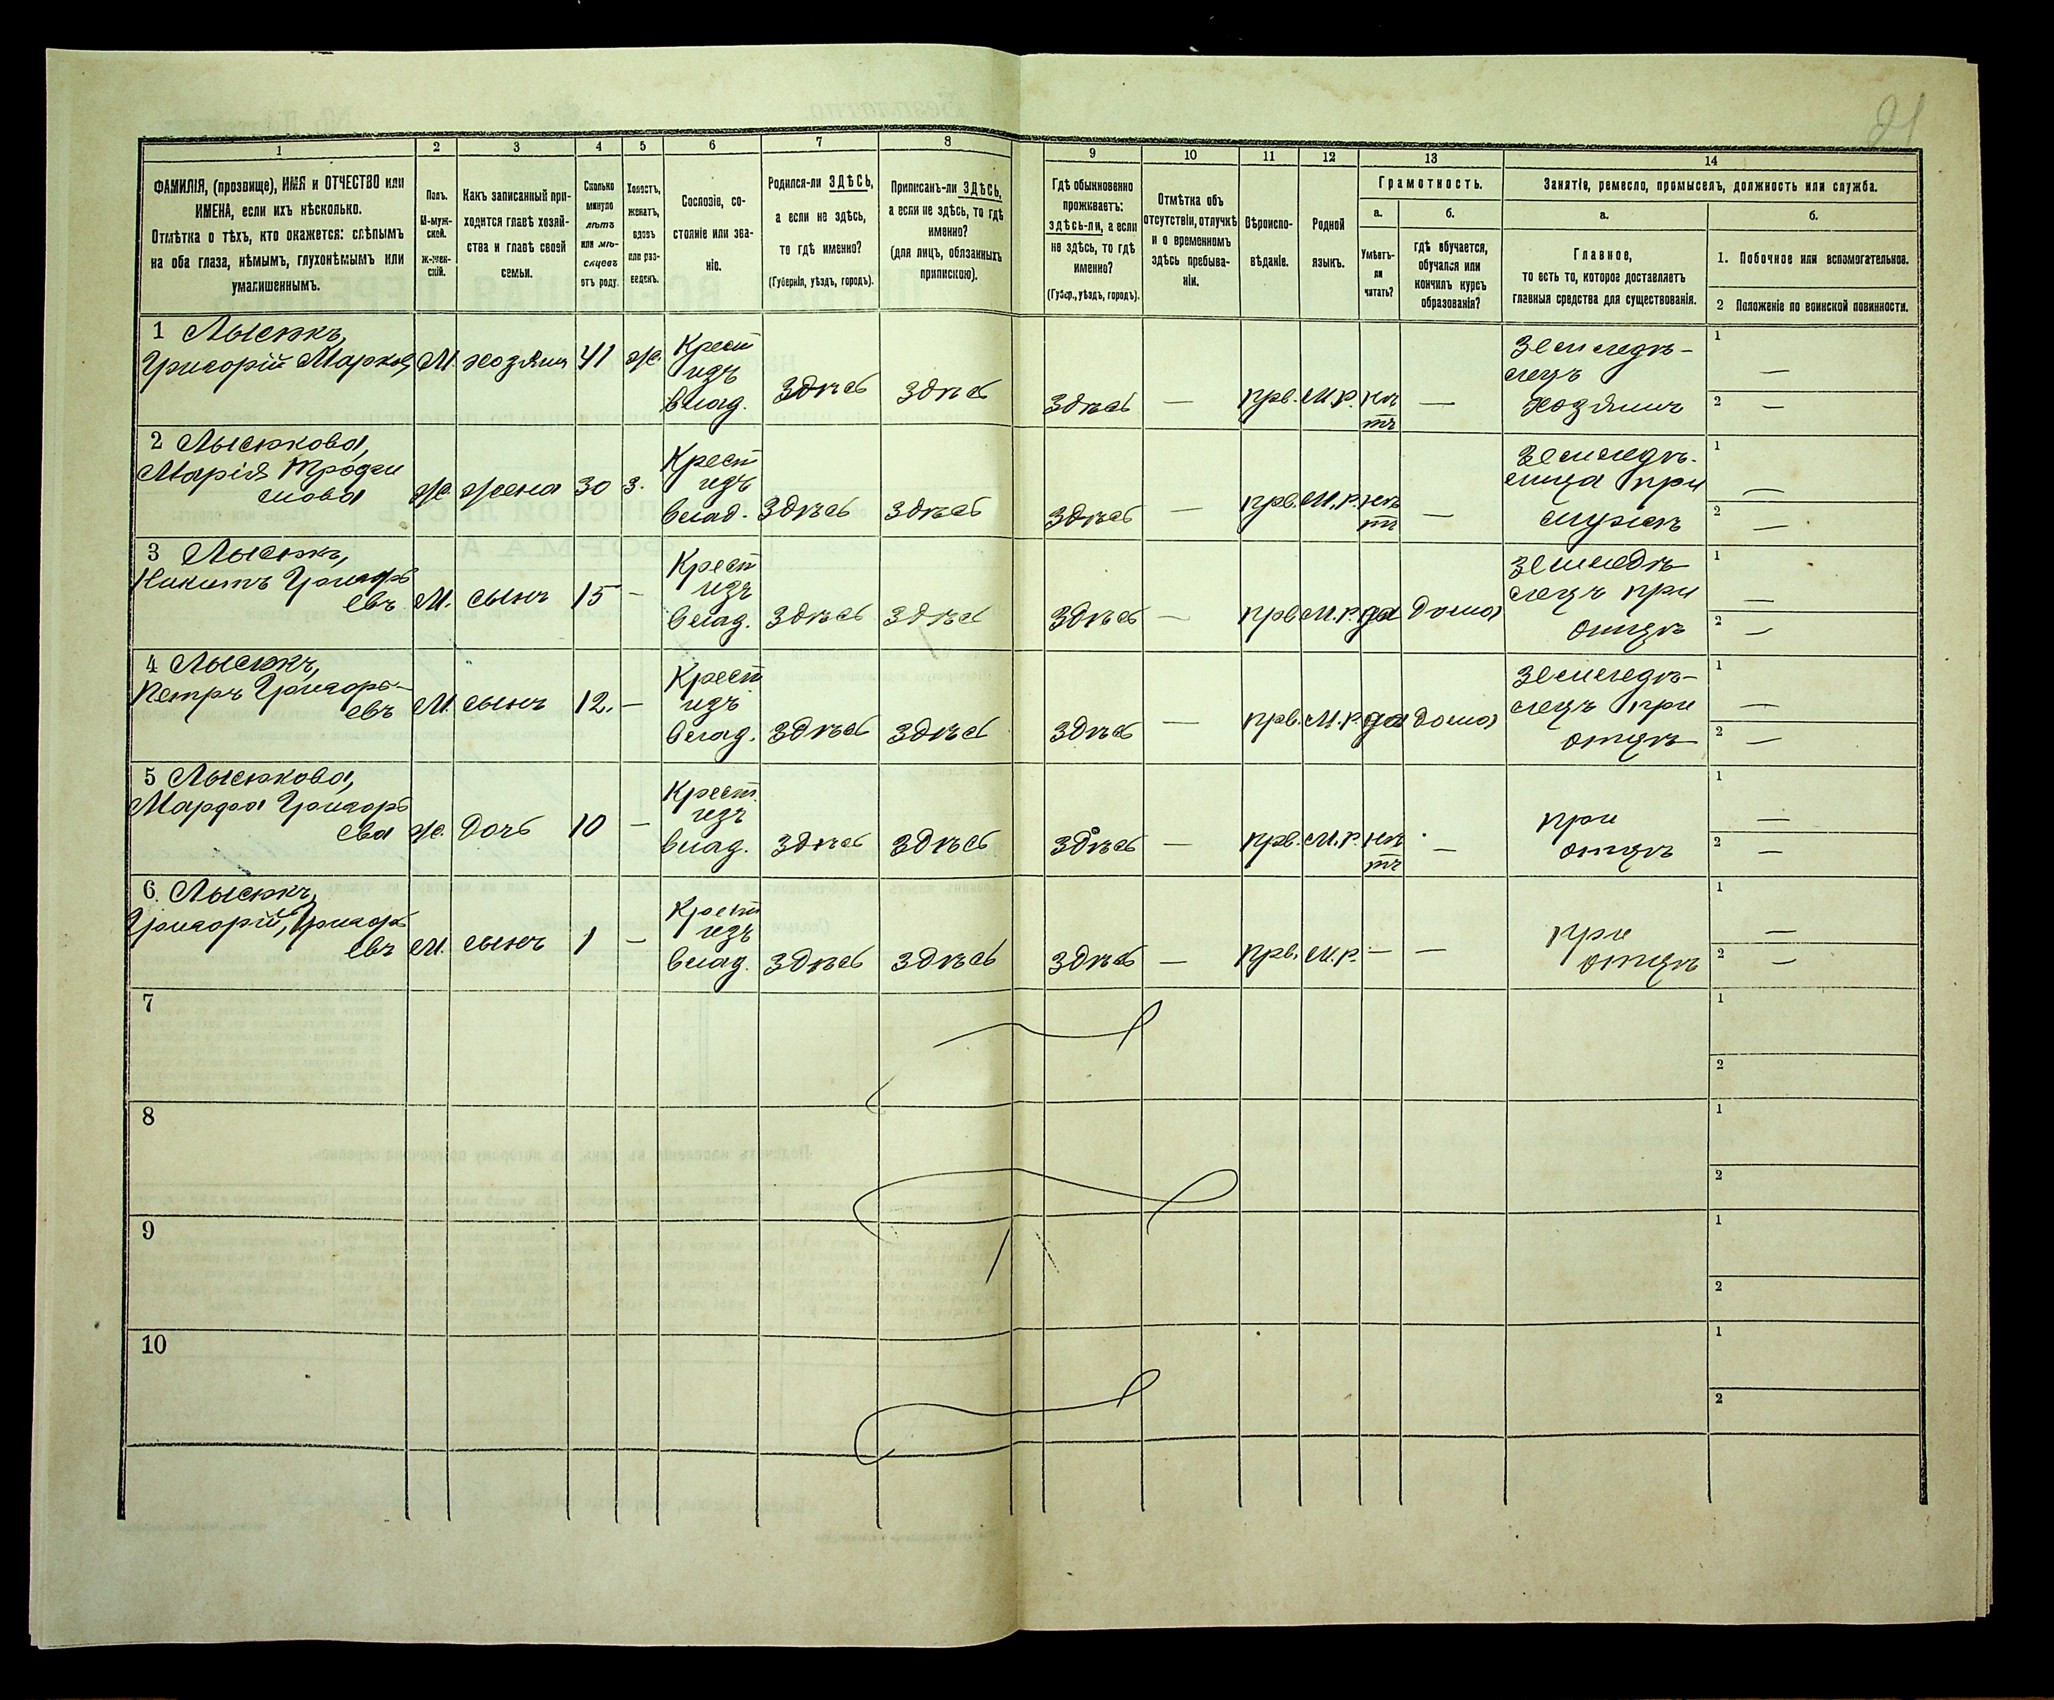 21
1 2 3 4 5 6 7 8 9 10 11 12 13 14
ФАМИЛІЯ, (прозвище), ИМЯ и ОТЧЕСТВО или
ИМЕНА, если ихъ нѣсколько.
Отмѣтка о тѣхъ, кто окажется: слѣпымъ
на оба глаза, нѣмымъ, глухонѣмымъ или
умалишеннымъ.
Полъ.
М-муж-
ской.
Ж-жен-
скій.
Какъ записанный при-
ходится главѣ хозяй-
ства и главѣ своей
семьи.
Сколько
минуло
лѣтъ
или мѣ-
сяцевъ
отъ роду.
Холостъ,
женатъ,
вдовъ
или раз-
веденъ.
Сословіе, со-
стояніе или зва-
ніе.
Родился-ли ЗДѢСЬ,
а если не здѣсь,
то гдѣ именно?
(Губернія, уѣздъ, городъ).
Приписанъ-ли ЗДѢСЬ,
а если не здѣсь, то гдѣ
именно?
(для лицъ, обязанныхъ
припискою).
Гдѣ обыкновенно
проживаетъ:
здѣсь-ли, а если
не здѣсь, то гдѣ
именно?
(Губер., уѣздъ, городъ).
Отмѣтка объ
отсутствіи, отлучкѣ
и о временномъ
здѣсь пребыва-
ніи.
Вѣроиспо-
вѣданіе.
Родной
языкъ.
Грамотность.
а.
Умѣетъ-
ли
читать?
б.
гдѣ обучается,
обучался или
кончилъ курсъ
образованія?
Занятіе, ремесло, промыселъ, должность или служба.
а.
Главное,
то есть то, которое доставляетъ
главныя средства для существованія.
б.
1. Побочное или вспомогательное.
2 Положеніе по воинской повинности.
1 Лысюкъ,
Григорій Марков
М. хозяин 41 ж.
Крест
изъ
влад.
здѣсь здѣсь здѣсь — прв. М.р. нѣ
тъ
—
Земледѣ-
лецъ
хозяинъ
1 —
2 —
2 Лысюкова,
Марія Трофи
мова
ж. жена 30 з.
Крест
изъ
влад.
здѣсь здѣсь здѣсь — прв. М.р. нѣ
тъ
—
Земледѣ-
лица при
мужѣ
1 —
2 —
3 Лысюкъ,
Никита Григорь
евъ
М. сынъ 15 —
Крест
изъ
влад.
здѣсь здѣсь здѣсь — прв М.р. да дома
Земледѣ-
лецъ при
отцѣ
1 —
2 —
4 Лысюкъ,
Петръ Григорь-
евъ
М. сынъ 12. —
Крест
изъ
влад.
здѣсь здѣсь здѣсь — прв. М.р. да дома
Земледѣ-
лецъ при
отцѣ
1 —
2 —
5 Лысюкова,
Марфа Григорь
ева
ж. дочь 10 —
Крест.
изъ
влад.
здѣсь здѣсь здѣсь — прв. М.р. нѣ
тъ
—
при
отцѣ
1 —
2 —
6. Лысюкъ,
Григорій, Григорь
евъ
М. сынъ 1 —
Крест
изъ
влад.
здѣсь здѣсь здѣсь — прв. М.р. — —
при
отцѣ
1 —
2 —
7
1
2
8
1
2
9
1
2
10
1
2